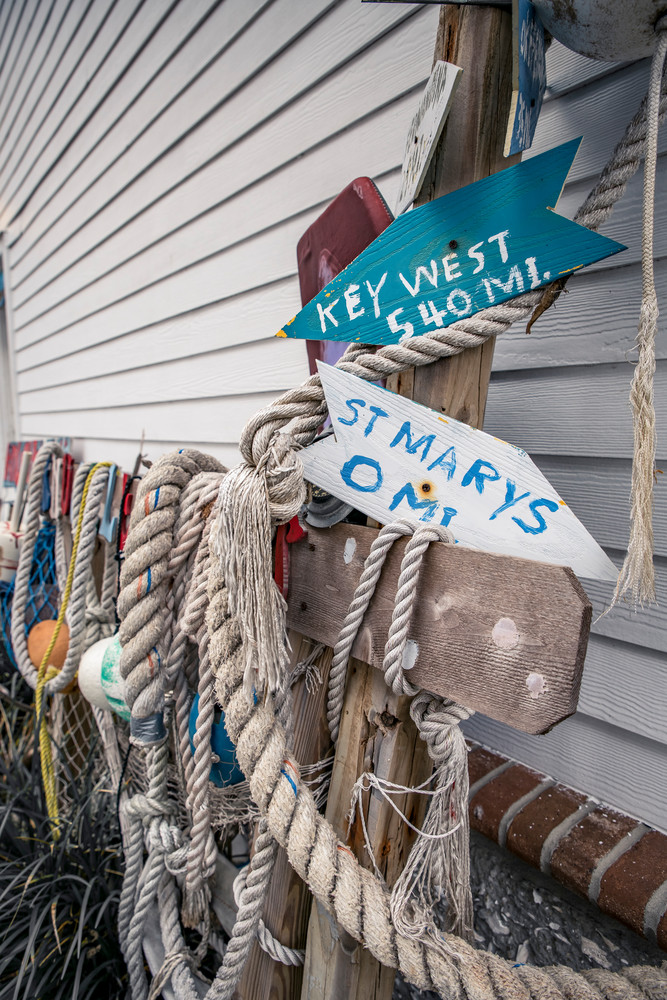 KEY WEST
540 MI.
ST MARYS
0 MI.